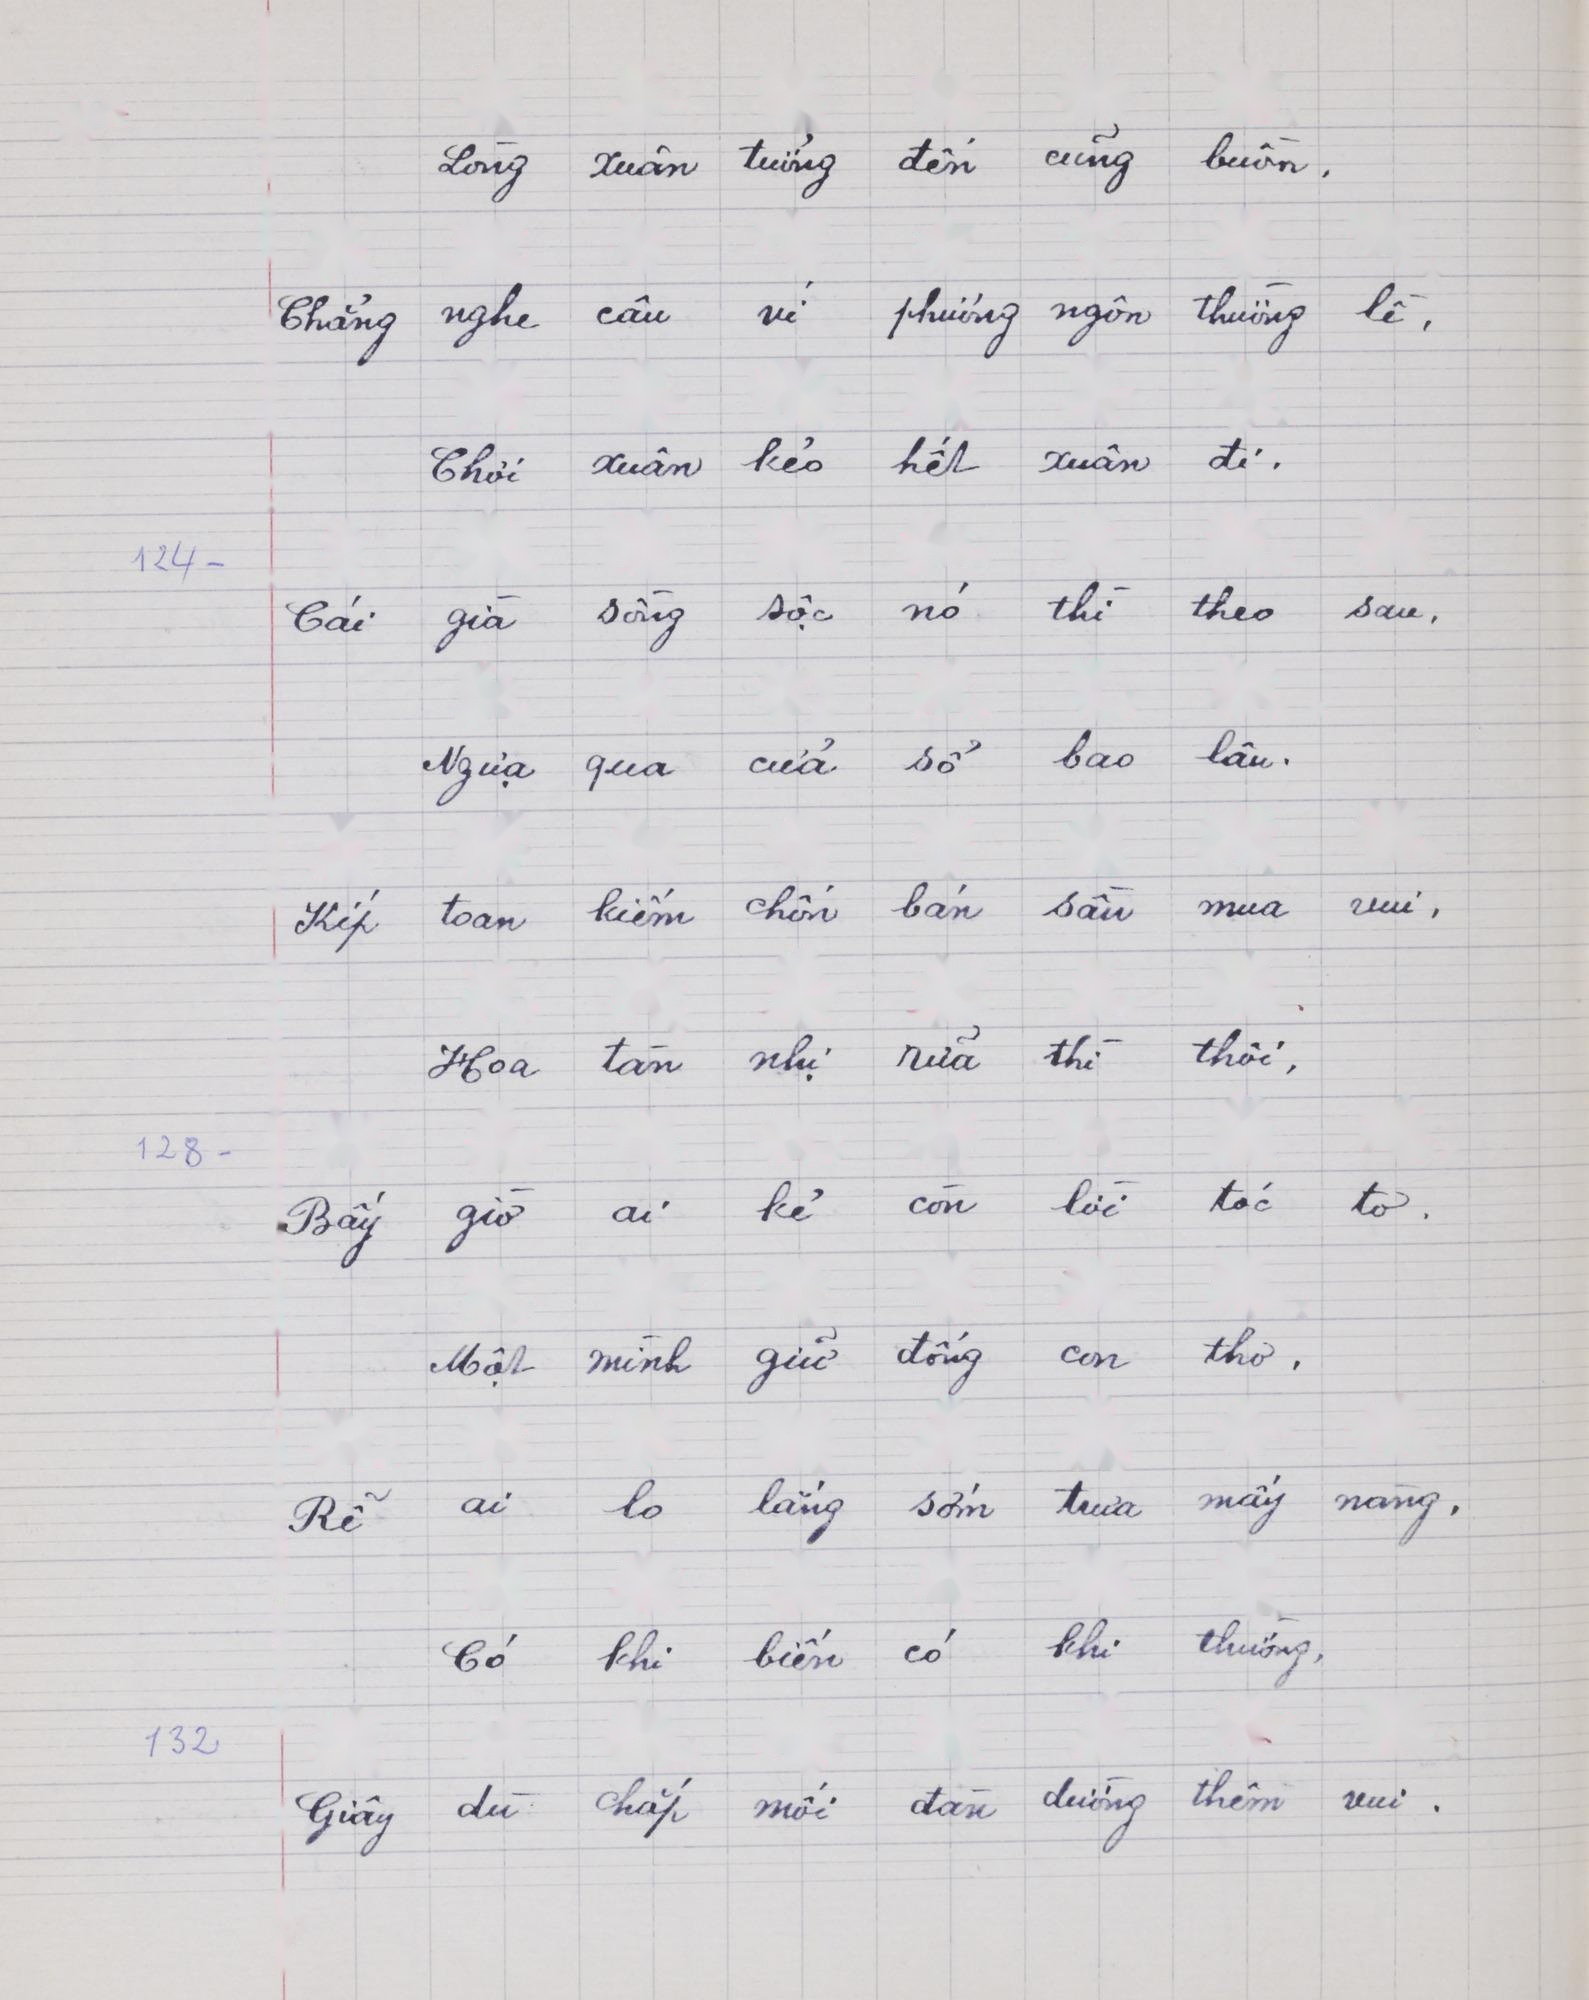 Lòng xuân tưởng đến cũng buồn,
Chẳng nghe câu ví phương ngôn thường lề,
Chơi xuân kẻo hết xuân đi.
124-
Cái già sồng sộc nó thì theo sau,
Ngựa qua cửa sổ bao lâu.
Kíp toan kiếm chốn bán sầu mua vui,
Hoa tàn nhị rữa thì thôi,
128-
Bấy giờ ai kẻ còn lời tóc tơ.
Một mình giữ đống con thơ,
Rễ ai lo lắng sớm trưa mấy nàng,
Có khi biến có khi thường,
132
Giây dù chắp mối đàn dường thêm vui.